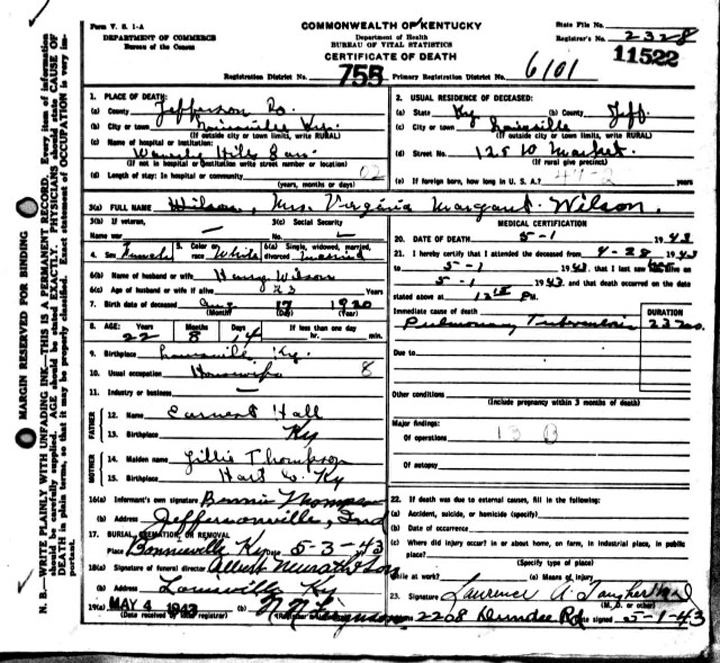 Form V. S. 1-A
DEPARTMENT OF COMMERCE
Bureau of the Census
COMMONWEALTH OF KENTUCKY
Department of Health
BUREAU OF VITAL STATISTICS
CERTIFICATE OF DEATH
State File No.
Registrar's No. 2328
11522
Registration District No. 755 Primary Registration District No. 6101
MARGIN RESERVED FOR BINDING
N. B.—WRITE PLAINLY WITH UNFADING INK—THIS IS A PERMANENT RECORD. Every item of information should be carefully supplied. AGE should be stated EXACTLY. PHYSICIANS should state CAUSE OF DEATH in plain terms, so that it may be properly classified. Exact statement of OCCUPATION is very important.
1. PLACE OF DEATH:
(a) County Jefferson Co.
(b) City or town Louisville Ky.
(If outside city or town limits, write RURAL)
(c) Name of hospital or institution:
Waverly Hills San
(If not in hospital or institution write street number or location)
(d) Length of stay: In hospital or community 02
(years, months or days)
2. USUAL RESIDENCE OF DECEASED:
(a) State Ky (b) County Jeff.
(c) City or town Louisville
(If outside city or town limits, write RURAL)
(d) Street No. 12 W Market.
(If rural give precinct)
(e) If foreign born, how long in U. S. A.? years
3(a) FULL NAME Wilson, Mrs. Virginia Margaret Wilson.
3(b) If veteran,
Name war —
3(c) Social Security
No. —
4. Sex Female 5. Color or race White 6(a) Single, widowed, married, divorced Married
6(b) Name of husband or wife Henry Wilson
6(c) Age of husband or wife if alive 23 Years
7. Birth date of deceased Aug 17 1920
(Month) (Day) (Year)
8. AGE: Years Months Days If less than one day
22 8 14 hr. min.
9. Birthplace Louisville Ky.
10. Usual occupation Housewife 8
11. Industry or business —
FATHER
12. Name Earnest Hall
13. Birthplace Ky
MOTHER
14. Maiden name Lillie Thompson
15. Birthplace Hart Co. Ky
16(a) Informant's own signature Bonnie Thompson
(b) Address Jeffersonville, Ind
17. BURIAL, CREMATION, OR REMOVAL
Place Bonnieville Ky Date 5-3-43
18(a) Signature of funeral director Albert & Son
(b) Address Louisville Ky
19(a) MAY 4 1943 (b) N N Ferguson
(Date received by local registrar)
MEDICAL CERTIFICATION
20. DATE OF DEATH 5-1 1943
21. I hereby certify that I attended the deceased from 4-28 1943
to 5-1 1943, that I last saw her alive on
5-1 1943 and that death occurred on the date
stated above at PM.
Immediate cause of death DURATION
Pulmonary Tuberculosis
Due to
Other conditions
(Include pregnancy within 3 months of death)
Major findings:
Of operations 13 B
Of autopsy
22. If death was due to external causes, fill in the following:
(a) Accident, suicide, or homicide (specify)
(b) Date of occurrence
(c) Where did injury occur? in or about home, on farm, in industrial place, in public place?
(Specify type of place)
While at work? (e) Means of injury
23. Signature Laurence A. Taugher M.D.
(M. D. or other)
2208 Dundee Rd Date signed 5-1-43